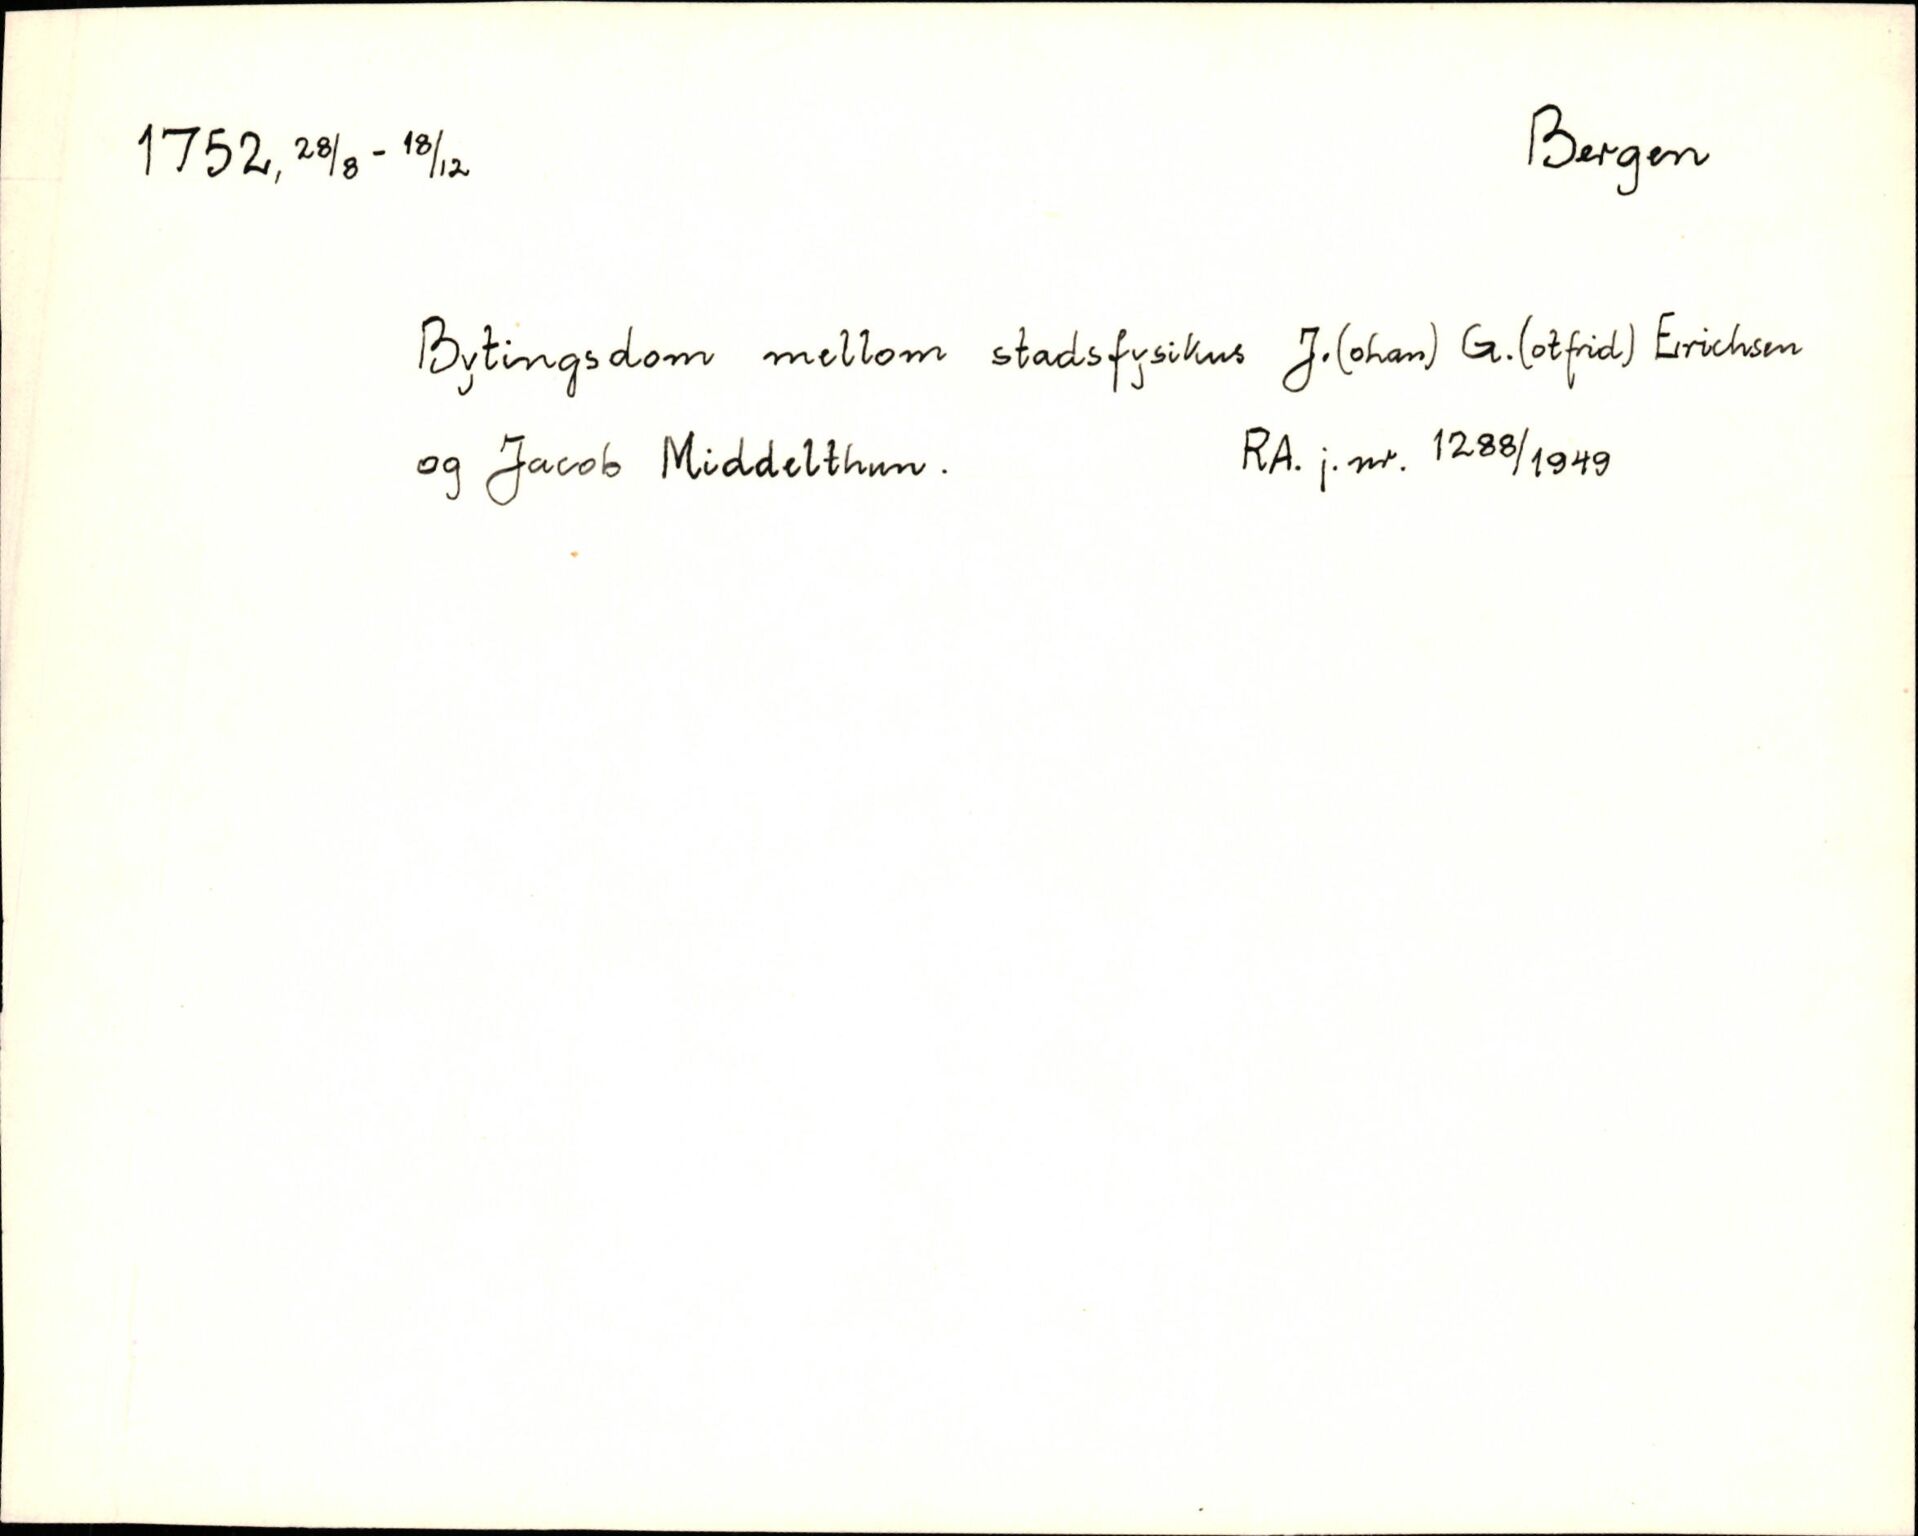 1752, 28/8 - 18/12 Bergen
Bytingsdom mellom stadsfysikus J.(ohan) G.(otfrid) Erichsen
og Jacob Middelthun. RA. j. nr. 1288/1949